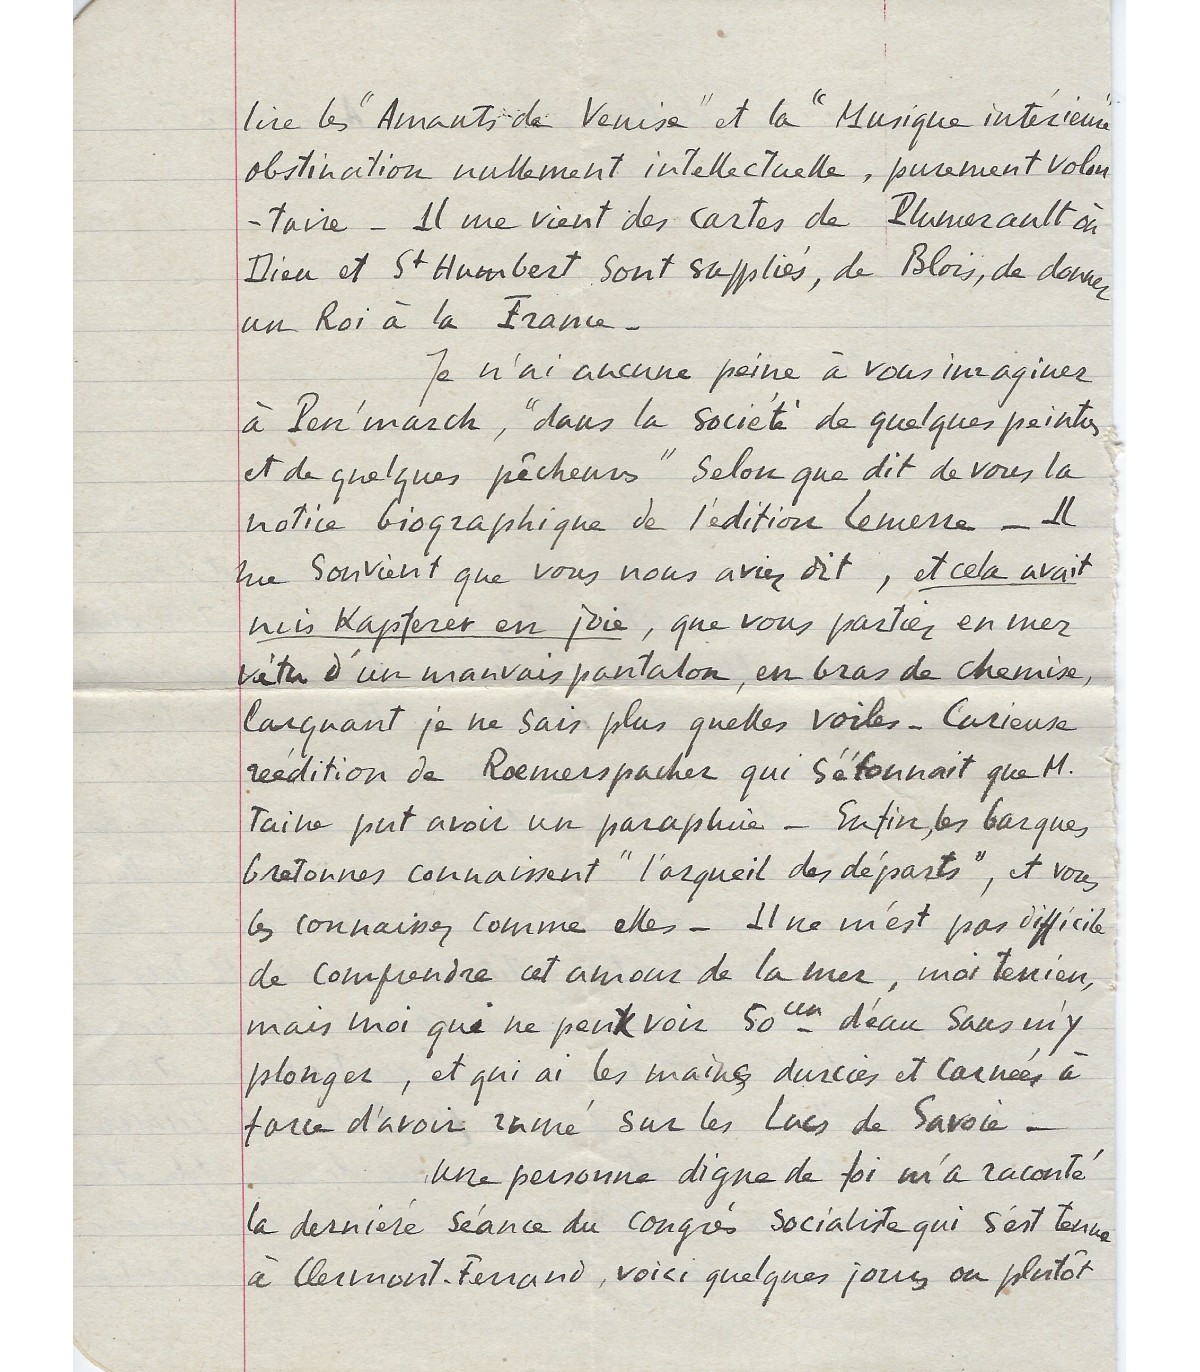 lire les "Amants de Venise" et la "Musique intérieure"
obstination nullement intellectuelle, purement volon
-taire - Il me vient des cartes de Plumerault où
Dieu et St Humbert sont suppliés, de Blois, de donner
un Roi à la France -
Je n'ai aucune peine à vous imaginer
à Pen'march, "dans la société de quelques peintres
et de quelques pêcheurs" selon que dit de vous la
notice biographique de l'édition Lemerre - Il
me souvient que vous nous aviez dit, et cela avait
mis Kapferer en joie, que vous partiez en mer
vêtu d'un mauvais pantalon, en bras de chemise,
larguant je ne sais plus quelles voiles - Curieuse
réédition de Roemerspacher qui s'étonnait que M.
Taine put avoir un parapluie - Enfin, les barques
bretonnes connaissent "l'orgueil des départs", et vous
les connaissez comme elles - Il ne m'est pas difficile
de comprendre cet amour de la mer, moi terrien,
mais moi qui ne peux voir 50 cm d'eau sans m'y
plonger, et qui ai les mains durcies et cornées à
force d'avoir ramé sur les Lacs de Savoie -
Une personne digne de foi m'a raconté
la dernière séance du Congrès socialiste qui s'est tenue
à Clermont-Ferrand, voici quelques jours ou plutôt